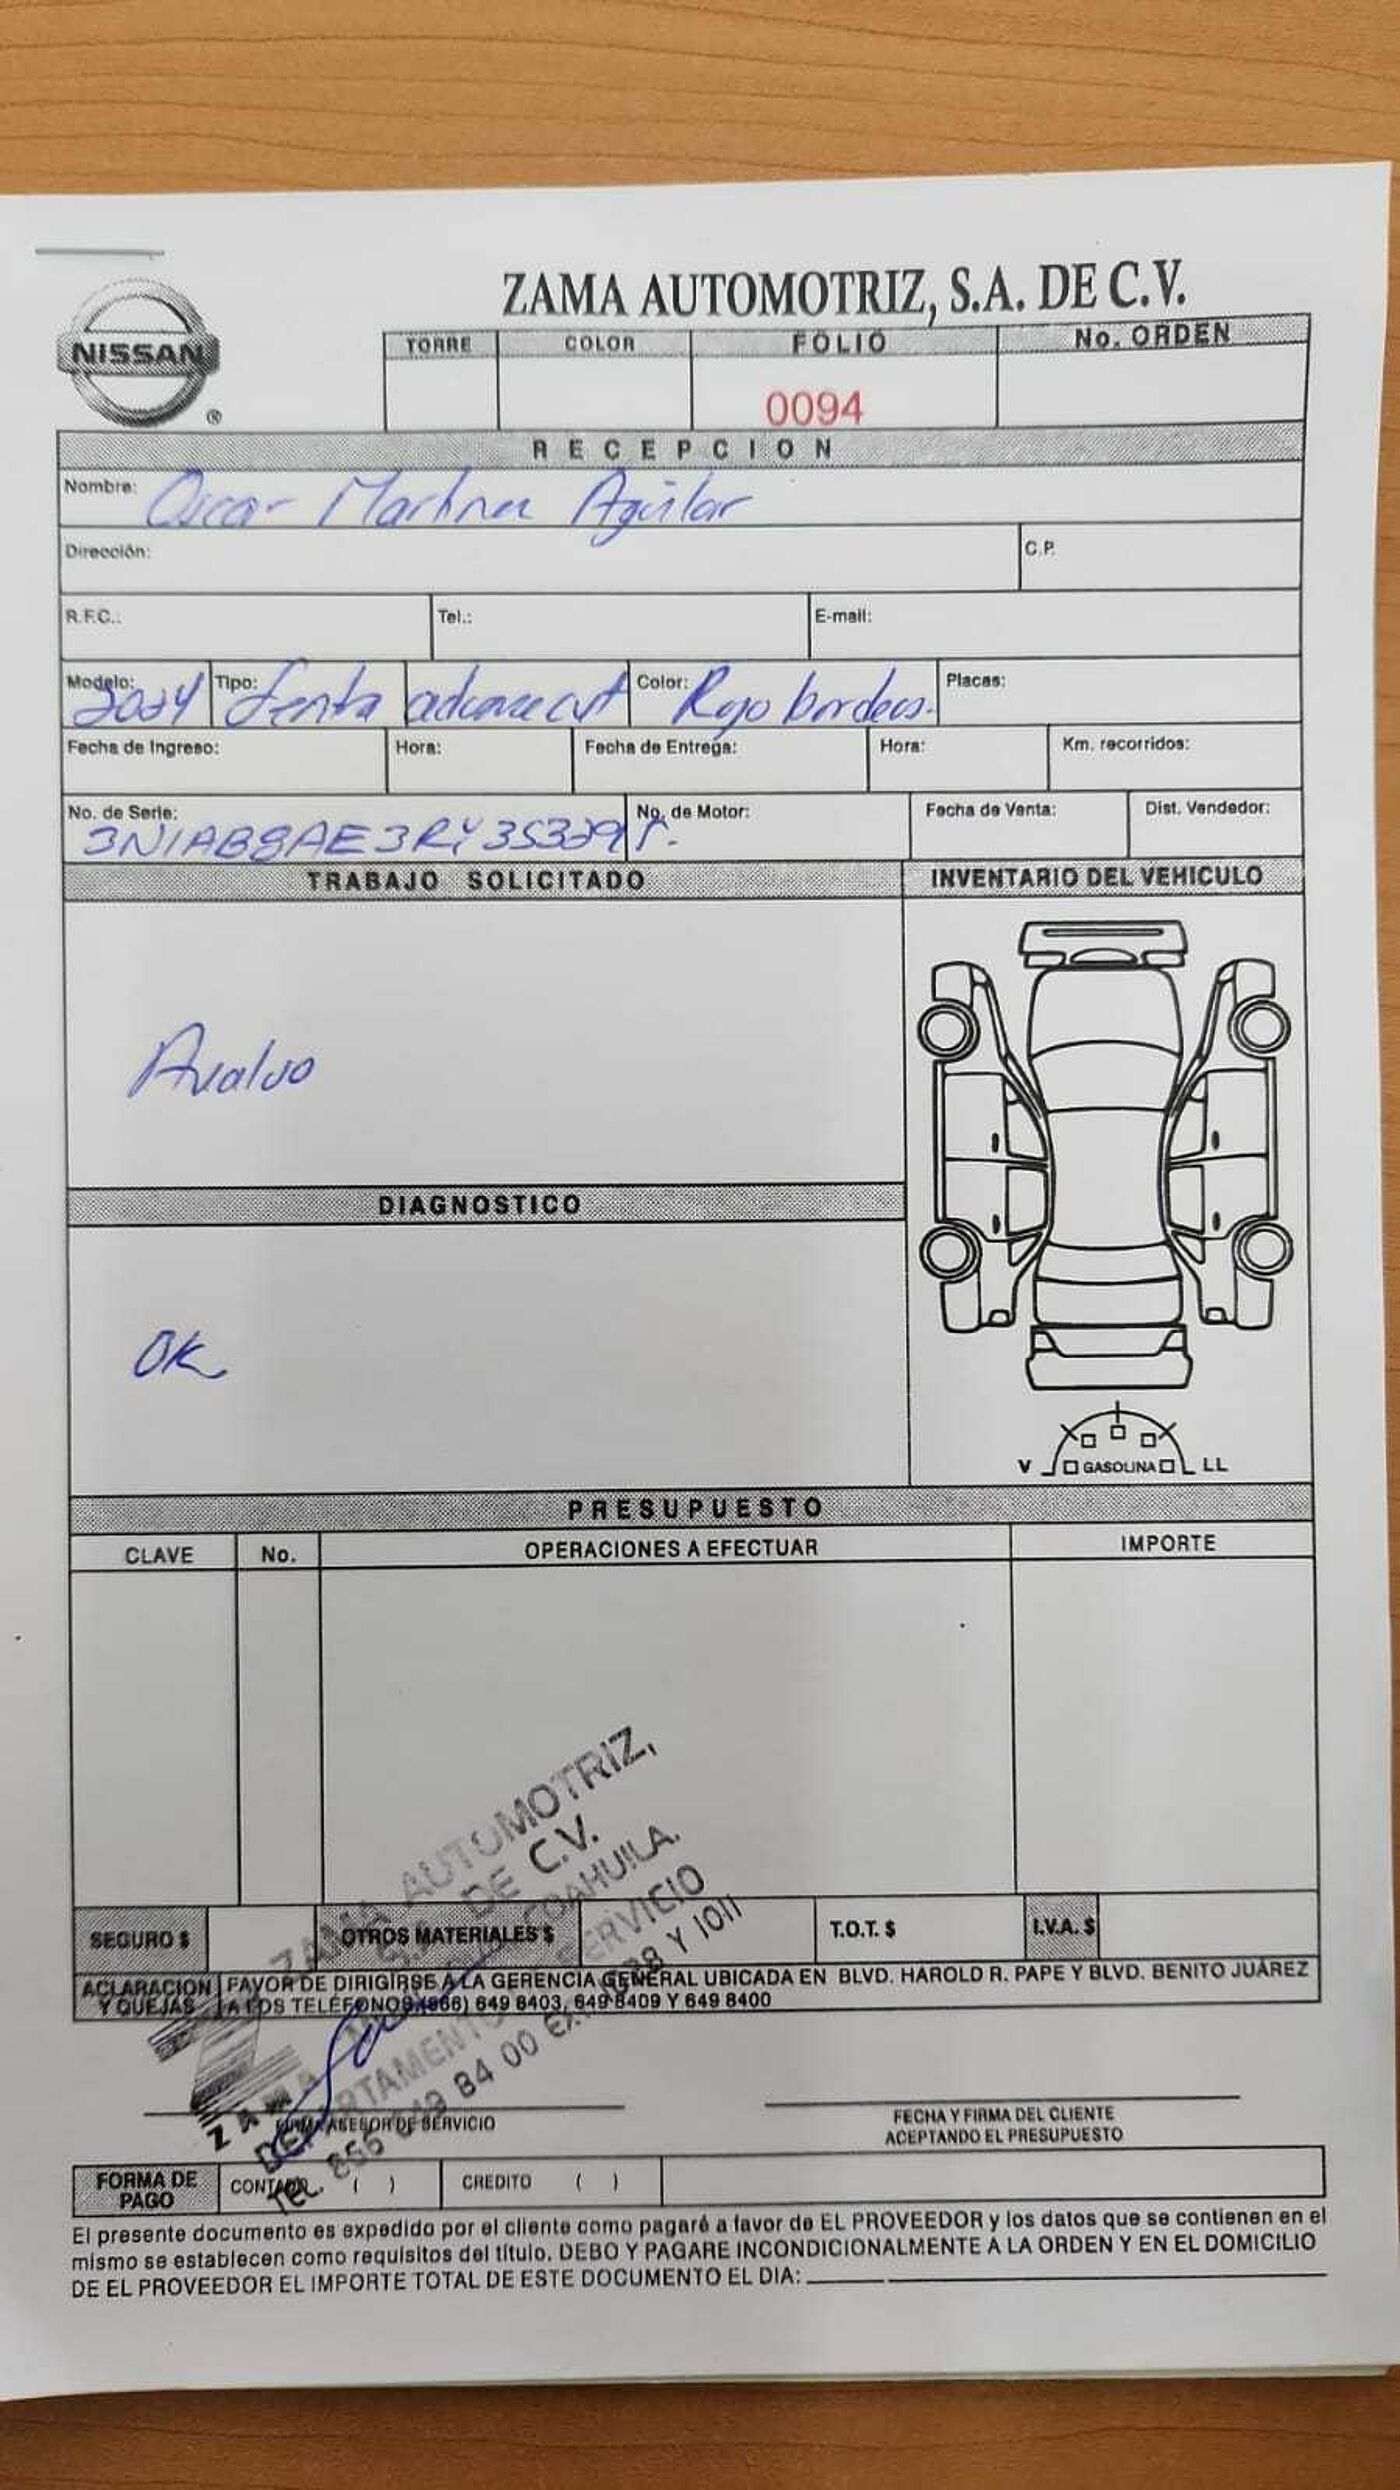 ZAMA AUTOMOTRIZ, S.A. DE C.V.
NISSAN ®
TORRE COLOR FOLIO No. ORDEN
0094
RECEPCION
Nombre: Oscar Martinez Aguilar
Dirección: C.P.
R.F.C.: Tel.: E-mail:
Modelo: 2024 Tipo: Sentra advance cvt Color: Rojo burdeos. Placas:
Fecha de Ingreso: Hora: Fecha de Entrega: Hora: Km. recorridos:
No. de Serie: 3N1AB8AE3RY353295. No. de Motor: Fecha de Venta: Dist. Vendedor:
TRABAJO SOLICITADO INVENTARIO DEL VEHICULO
Avaluo
DIAGNOSTICO
OK
V GASOLINA LL
PRESUPUESTO
CLAVE No. OPERACIONES A EFECTUAR IMPORTE
ZAMA AUTOMOTRIZ,
DE C.V.
COAHUILA.
SERVICIO
SEGURO $ OTROS MATERIALES $ T.O.T. $ I.V.A. $
ACLARACION Y QUEJAS FAVOR DE DIRIGIRSE A LA GERENCIA GENERAL UBICADA EN BLVD. HAROLD R. PAPE Y BLVD. BENITO JUÁREZ
A LOS TELÉFONOS (866) 649 8403, 649 8409 Y 649 8400
ZAMA
DEPARTAMENTO
TEL. 866 649 84 00 EXT. Y 1011
FIRMA ASESOR DE SERVICIO
FECHA Y FIRMA DEL CLIENTE
ACEPTANDO EL PRESUPUESTO
FORMA DE PAGO CONTADO ( ) CREDITO ( )
El presente documento es expedido por el cliente como pagaré a favor de EL PROVEEDOR y los datos que se contienen en el
mismo se establecen como requisitos del título. DEBO Y PAGARE INCONDICIONALMENTE A LA ORDEN Y EN EL DOMICILIO
DE EL PROVEEDOR EL IMPORTE TOTAL DE ESTE DOCUMENTO EL DIA: